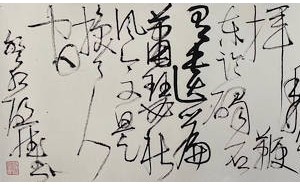 挥鞭
东临碣石
有遗篇
萧瑟秋
风今又是
换了人
间